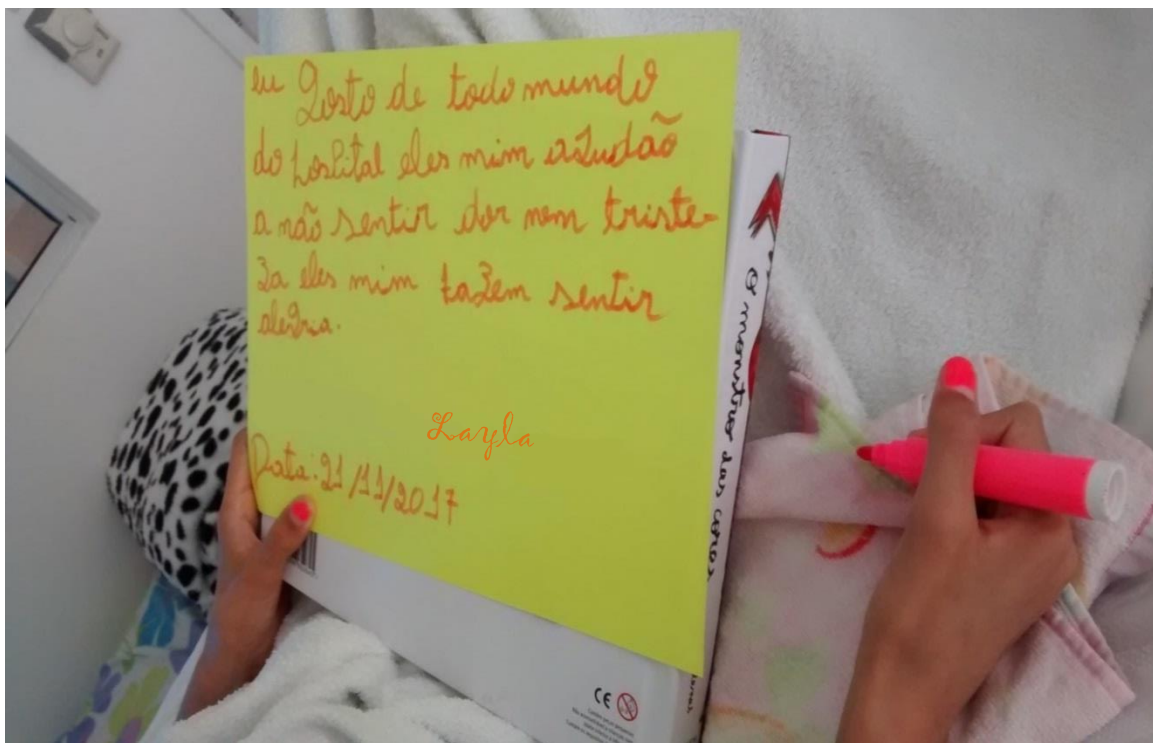 eu Gosto de todo mundo
do hospital eles mim aJudão
a não sentir dor nem triste-
za eles mim fazem sentir
aleGria.
Layla
Data: 21/11/2017
O monstro das cores
CE